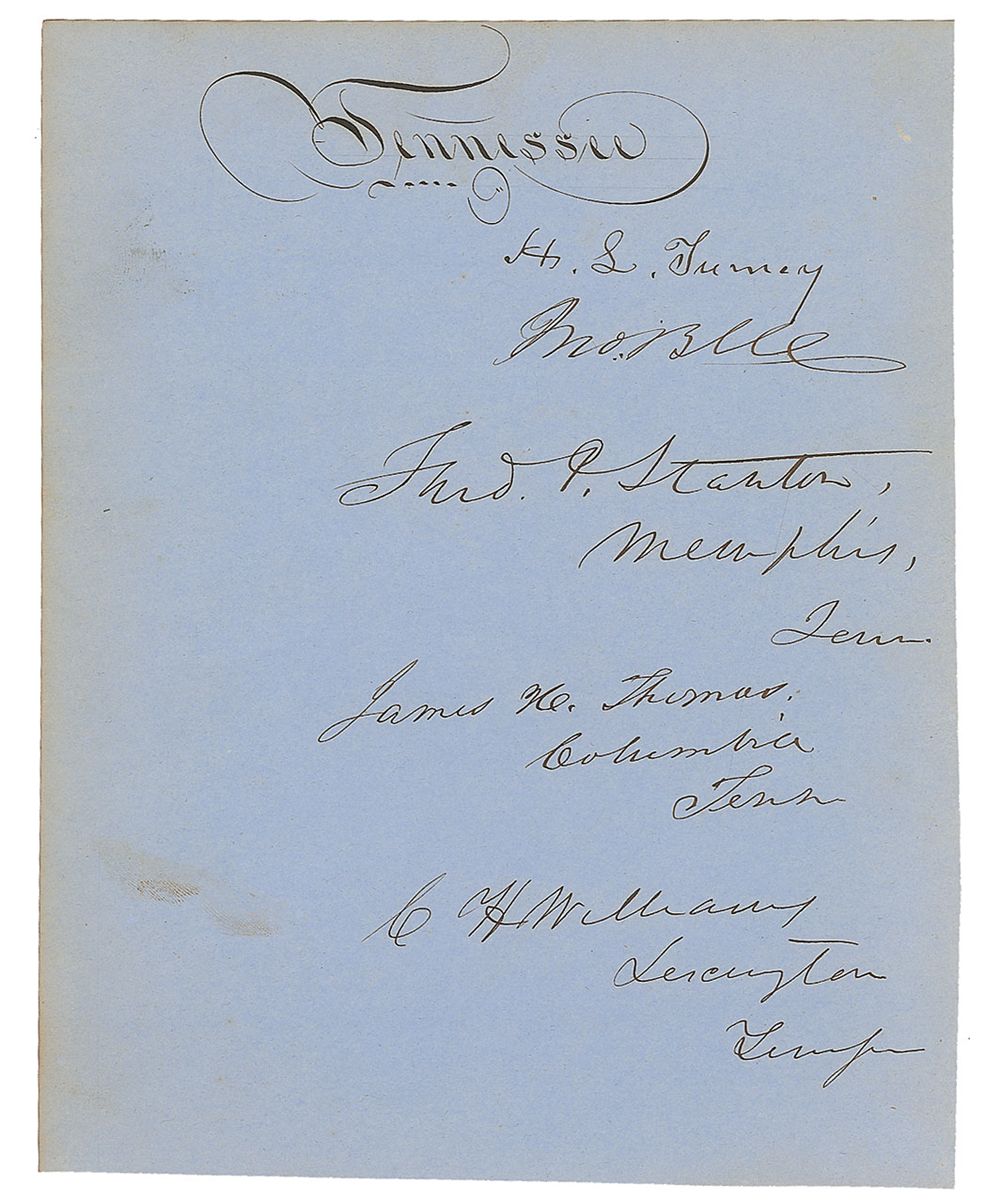 Tennessee
H. L. Turney
Jno. Bell
Fred. P. Stanton,
Memphis,
Tenn.
James H. Thomas.
Columbia
Tenn
C H Williams
Lexington
Tenn